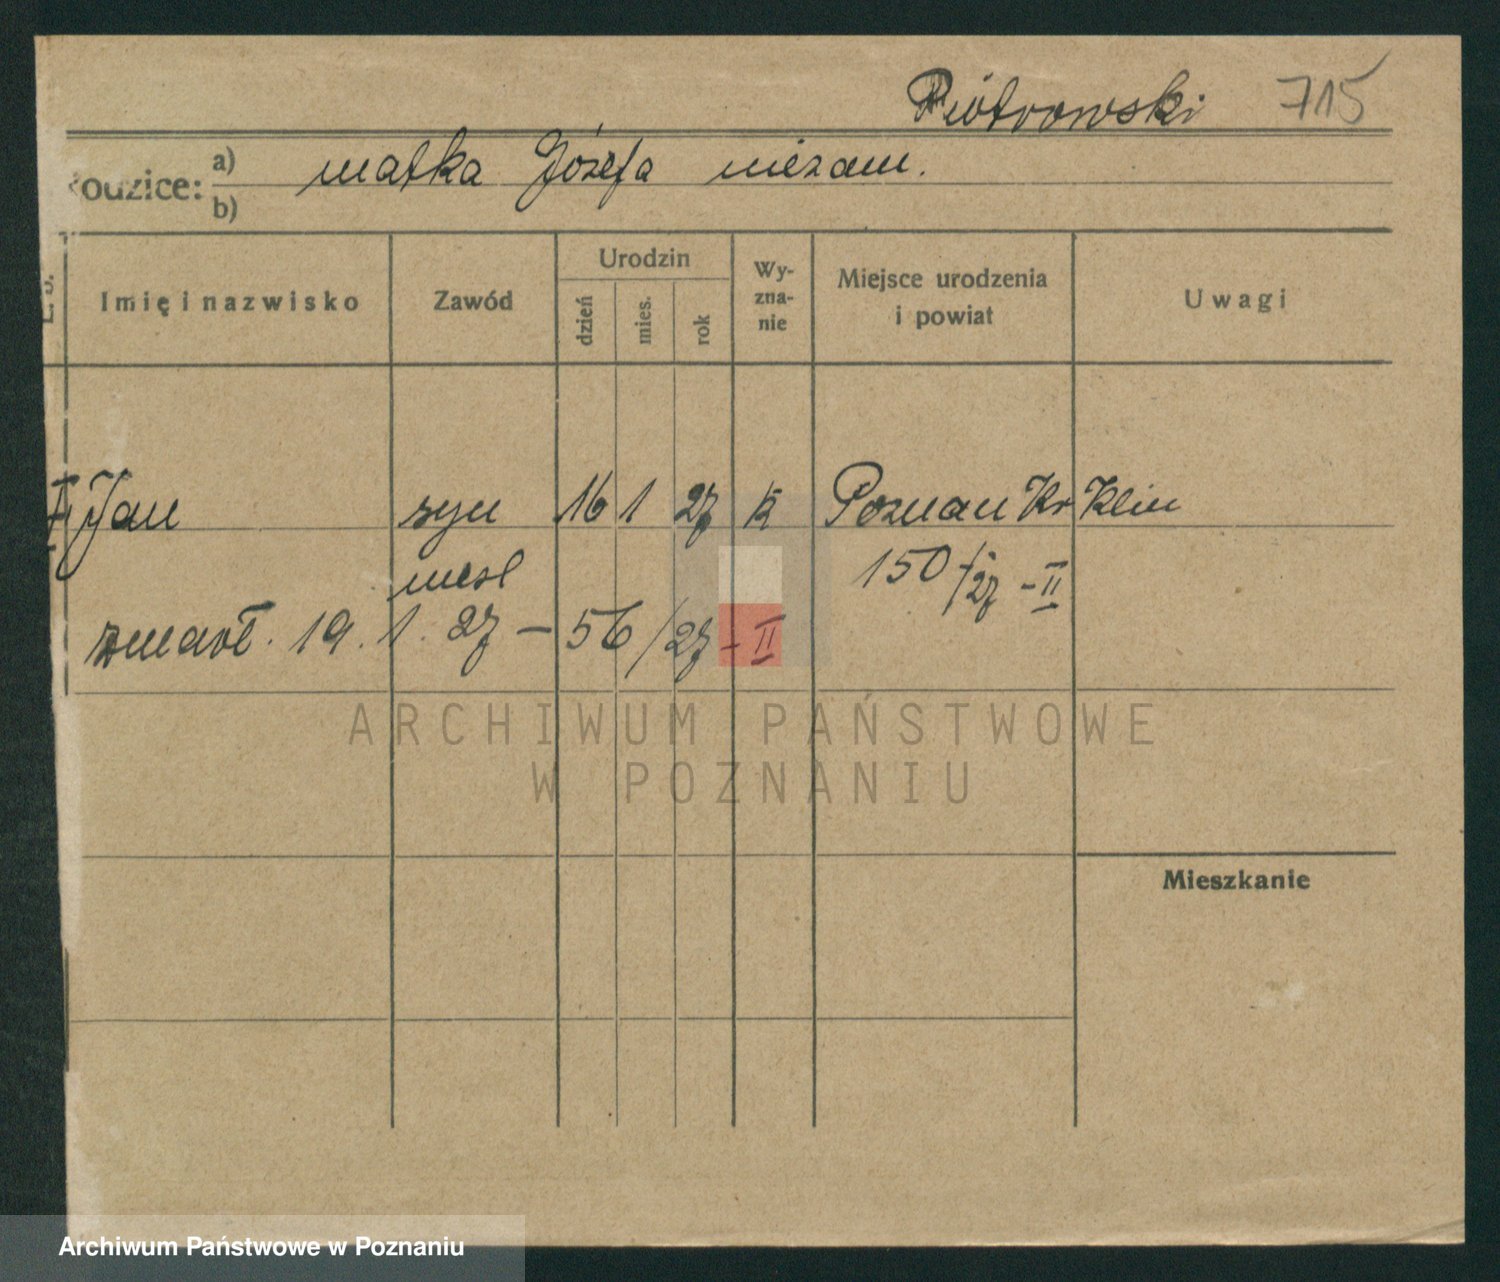 Piotrowski 715
Rodzice: a) matka Józefa niezam.
b)
L. b.
Imię i nazwisko
Zawód
Urodzin
dzień
mies.
rok
Wy-
zna-
nie
Miejsce urodzenia
i powiat
Uwagi
Jan syn 16 1 27 k Poznan Kr Klin
nieśl 150/27 - II
zmarł. 19. 1. 27 - 56/27 - II
ARCHIWUM PAŃSTWOWE
W POZNANIU
Mieszkanie
Archiwum Państwowe w Poznaniu